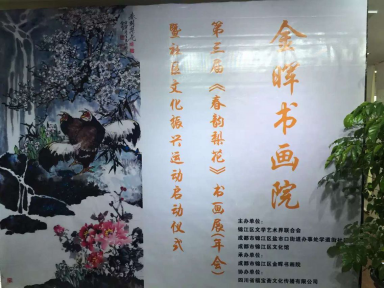 金晖书画院
第三届《春韵梨花》书画展(年会)
暨社区文化振兴运动启动仪式
主办单位:
锦江区文学艺术界联合会
成都市锦江区盐市口街道办事处学道街社
成都市锦江区文化馆
承办单位:
成都市锦江区金晖书画院
协办单位:
四川省砚宝斋文化传播有限公司